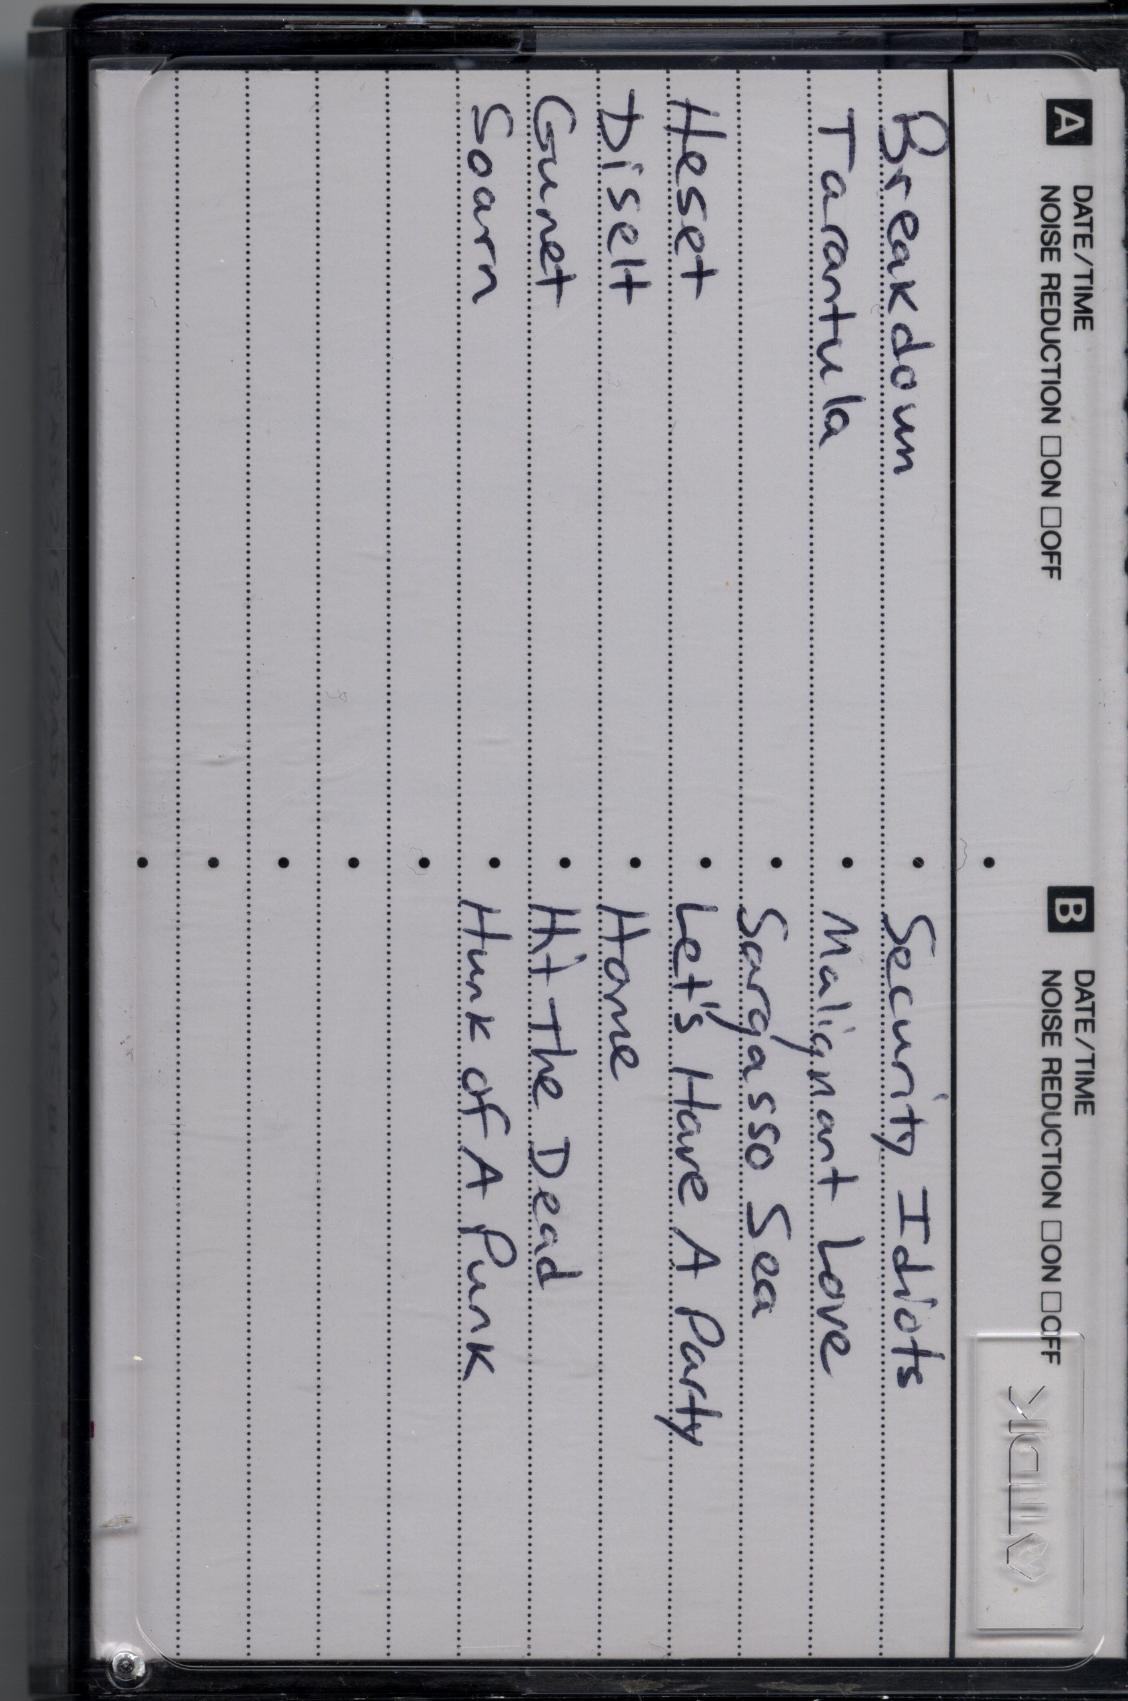 A DATE/TIME
NOISE REDUCTION □ON □OFF
B DATE/TIME
NOISE REDUCTION □ON □OFF
TDK
Breakdown • Security Idiots
Tarantula • Malignant Love
• Sargasso Sea
Heset • Let's Have A Party
Diselt • Home
Gunet • Hit The Dead
Soarn • Hunk of A Punk